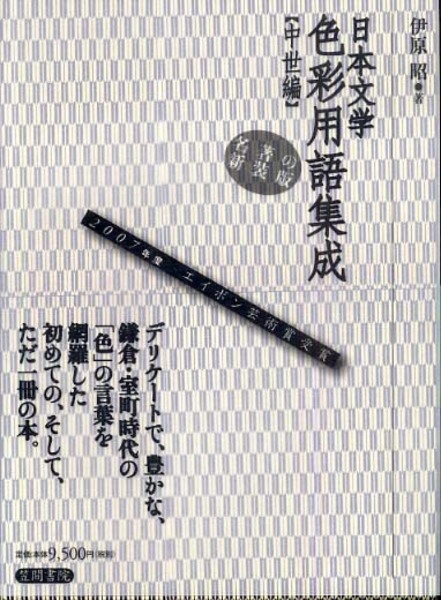 伊原 昭●著
日本文学
色彩用語集成
【中世編】
名著の
新装版
2007年度 エイボン芸術賞受賞
デリケートで、豊かな、
鎌倉・室町時代の
「色」の言葉を
網羅した
初めての、そして、
ただ一冊の本。
定価:本体9,500円(税別)
笠間書院